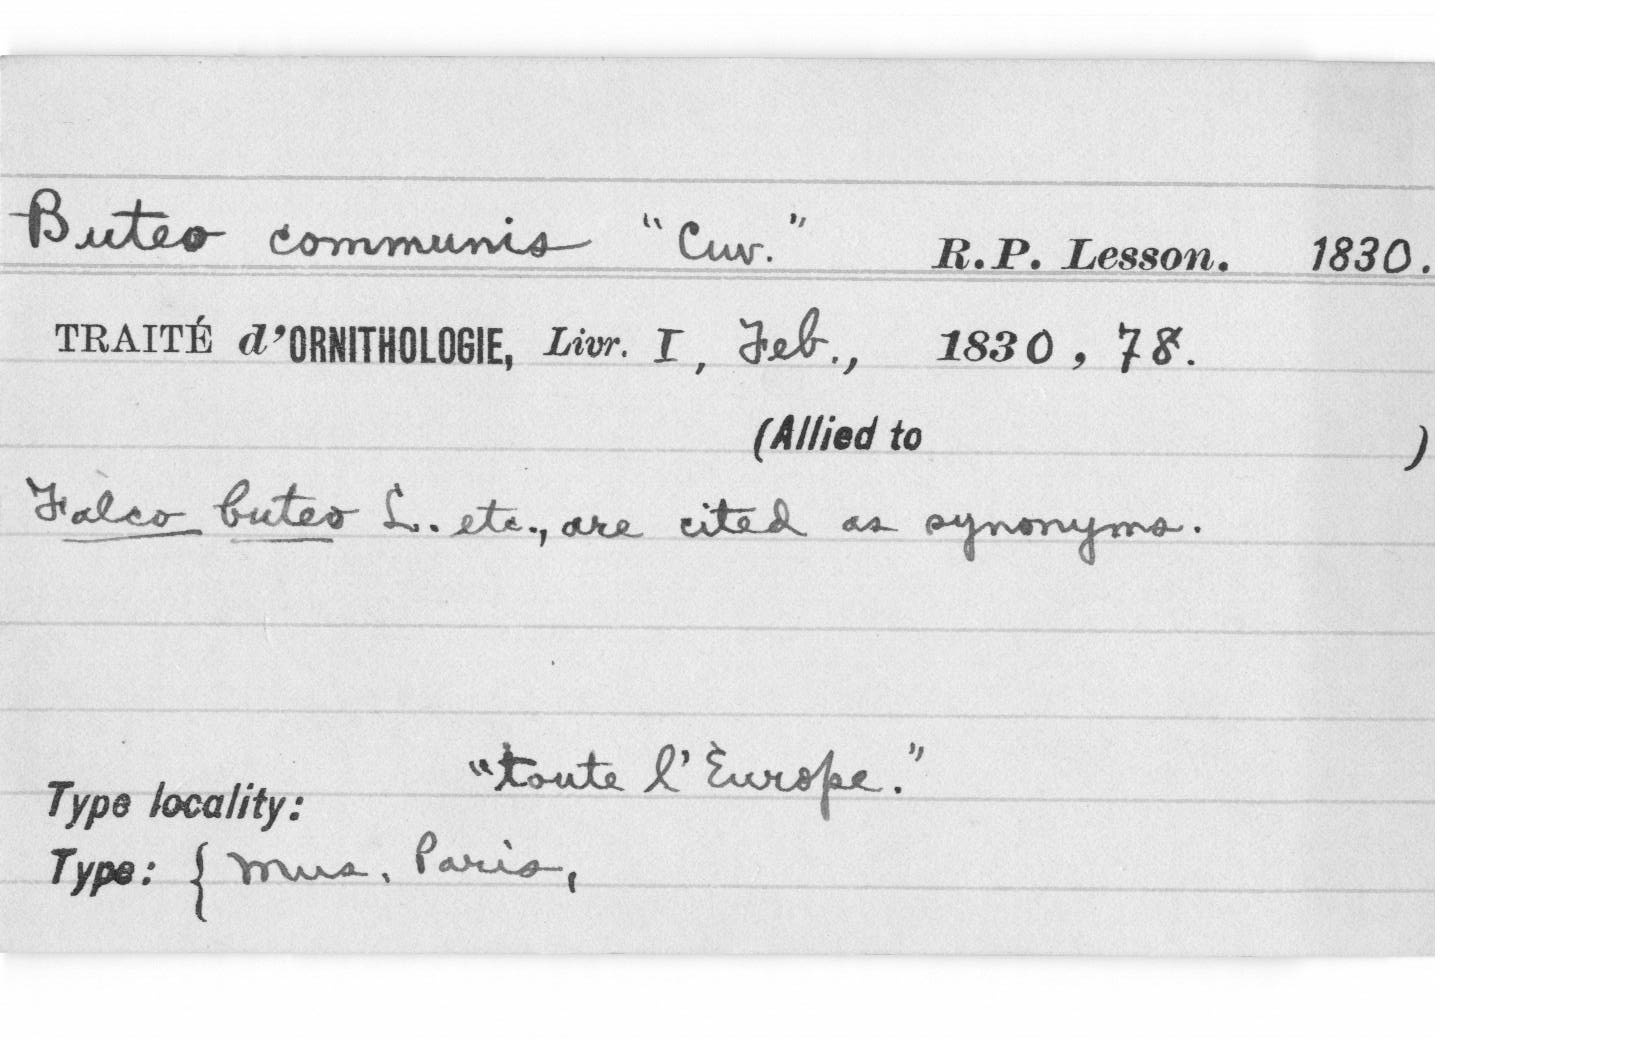 Buteo communis "Cuv." R.P. Lesson. 1830.
TRAITÉ d'ORNITHOLOGIE, Livr. I, Feb., 1830, 78.
(Allied to )
Falco buteo L. etc., are cited as synonyms.
"toute l'Europe."
Type locality:
Type: { Mus. Paris,